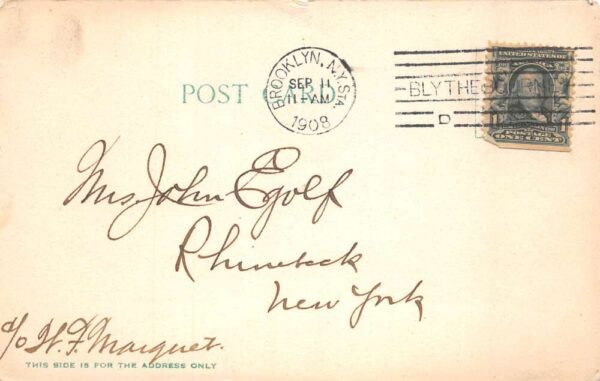 BROOKLYN, N.Y. STA.
SEP 11
11-AM
1908
BLYTHEBOURNE
D
UNITED STATES OF
POSTAGE
ONE CENT
POST CARD
Mrs John Egolf
Rhinebeck
New York
c/o W. F. Marquet.
THIS SIDE IS FOR THE ADDRESS ONLY